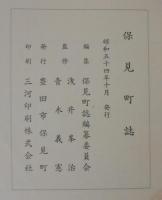 保見町誌
昭和五十四年十月 発行
編集 保見町誌編纂委員会
監修 浅井峯治
青木義憲
発行 豊田市保見町
印刷 三河印刷株式会社